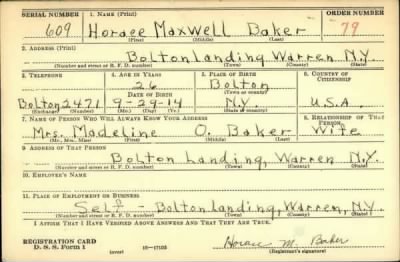 SERIAL NUMBER 1. NAME (Print) ORDER NUMBER
609 Horace Maxwell Baker 79
(First) (Middle) (Last)
2. ADDRESS (Print)
Bolton Landing Warren N.Y.
(Number and street or R. F. D. number) (Town) (County) (State)
3. TELEPHONE 4. AGE IN YEARS 5. PLACE OF BIRTH 6. COUNTRY OF CITIZENSHIP
26 Bolton
DATE OF BIRTH (Town or county)
Bolton 2471 9-29-14 N.Y. U.S.A.
(Exchange) (Number) (Mo.) (Day) (Yr.) (State or country)
7. NAME OF PERSON WHO WILL ALWAYS KNOW YOUR ADDRESS 8. RELATIONSHIP OF THAT PERSON
Mrs. Madeline O. Baker Wife
(Mr., Mrs., Miss) (First) (Middle) (Last)
9. ADDRESS OF THAT PERSON
Bolton Landing, Warren N.Y.
(Number and street or R. F. D. number) (Town) (County) (State)
10. EMPLOYER'S NAME
11. PLACE OF EMPLOYMENT OR BUSINESS
Self - Bolton Landing, Warren, N.Y.
(Number and street or R. F. D. number) (Town) (County) (State)
I AFFIRM THAT I HAVE VERIFIED ABOVE ANSWERS AND THAT THEY ARE TRUE.
REGISTRATION CARD
D. S. S. Form 1 (over) 16-17105 Horace M. Baker
(Registrant's signature)